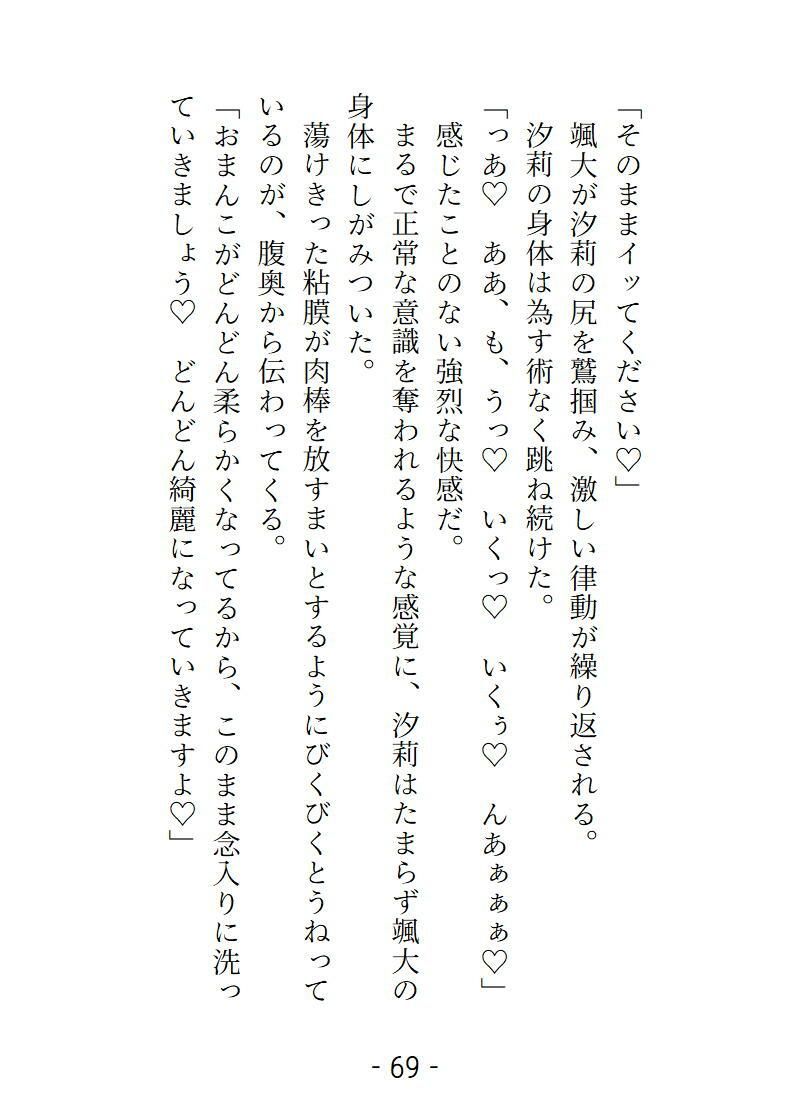 「そのままイッてください♡」
　颯大が汐莉の尻を鷲掴み、激しい律動が繰り返される。
　汐莉の身体は為す術なく跳ね続けた。
「っあ♡　ああ、も、うっ♡　いくっ♡　いくぅ♡　んあぁぁぁ♡」
　感じたことのない強烈な快感だ。
　まるで正常な意識を奪われるような感覚に、汐莉はたまらず颯大の
身体にしがみついた。
　蕩けきった粘膜が肉棒を放すまいとするようにびくびくとうねって
いるのが、腹奥から伝わってくる。
「おまんこがどんどん柔らかくなってるから、このまま念入りに洗っ
ていきましょう♡　どんどん綺麗になっていきますよ♡」
- 69 -